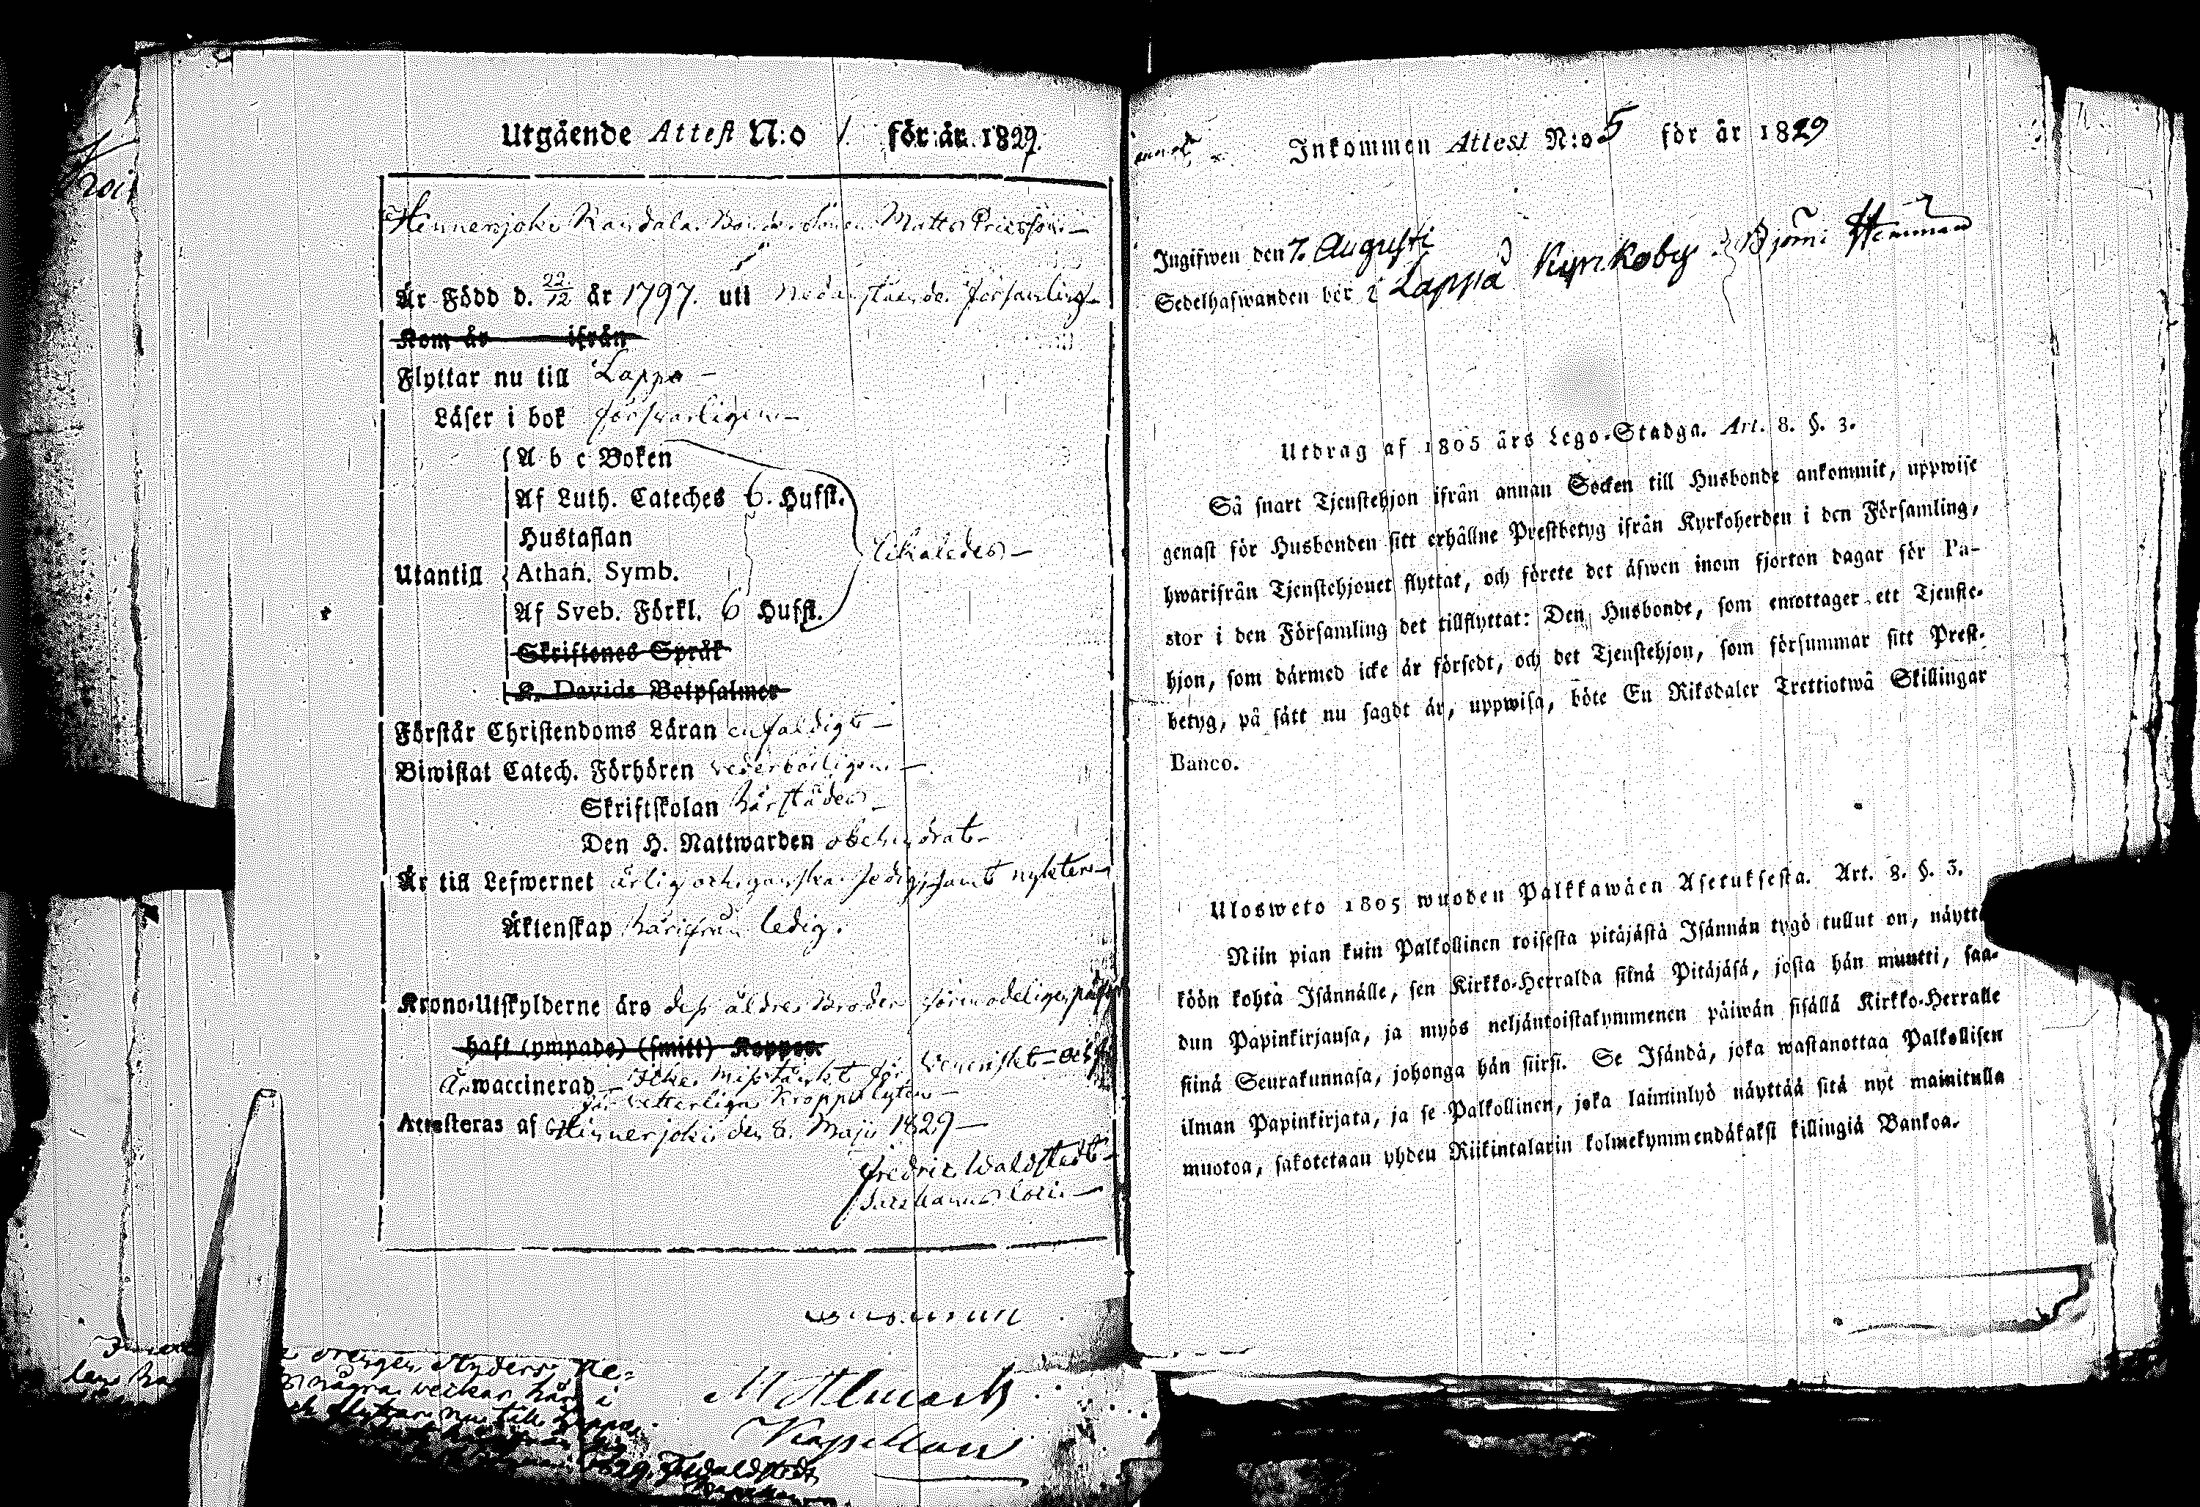 Utgående Attest N:o 1. för år 1829.
Hinnerjoki Randala Bonde Sonen Matts Ericsson
Är Född d. 22/12 år 1797. uti nedanstående församling
Kom år ifrån
Flyttar nu till Lappo
Läser i bok försvarligen
A b c Boken
Af Luth. Cateches 6. Hufst.
Hustaflan
likaledes
Utantill
Athan. Symb.
Af Sveb. Förkl. 6 Hufst.
Skriftenes Språk
K. Davids Botpsalmer
Förstår Christendoms Läran enfaldigt
Biwistat Catech. Förhören vederbörligen
Skriftskolan härstädes
Den H. Nattwarden obehindrat
Är till Lefwernet ärlig och ganska sedig, samt nykter
Äktenskap härifrån ledig.
Krono-Utskylderne års dess äldre Broder förmodeligen
haft (ympade) (smitt) Koppor.
Är waccinerad Icke misstänkt för Venerisk
för vetterliga kroppslyten
Attesteras af Hinnerjoki den 8. Maji 1829
Fredric Waldstedt
Sacellanus loci
M Alméark
Kapellan
drengen Anders
några veckor här i
flyttar nu till Lappo
1829. F Waldstedt
Inkommen Attest N:o 5 för år 1829
Ingifwen den 7. Augusti
Sedelhafwanden bor i Lappå Kyrkoby Björni Hemman
Utdrag af 1805 års Lego-Stadga. Art. 8. §. 3.
Så snart Tjenstehjon ifrån annan Socken till Husbonde ankommit, uppwise
genast för Husbonden sitt erhållne Prestbetyg ifrån Kyrkoherden i den Församling,
hwarifrån Tjenstehjonet flyttat, och förete det äfwen inom fjorton dagar för Pa-
stor i den Församling det tillflyttat: Den Husbonde, som emottager ett Tjenste-
hjon, som därmed icke är försedt, och det Tjenstehjon, som försummar sitt Prest-
betyg, på sätt nu sagdt är, uppwisa, böte En Riksdaler Trettiotwå Skillingar
Banco.
Ulosweto 1805 wuoden Palkkawäen Asetuksesta. Art. 8. §. 3.
Niin pian kuin Palkollinen toisesta pitäjästä Isännän tygö tullut on, näyttä
köön kohta Isännälle, sen Kirkko-Herralda siinä Pitäjäsä, josta hän muutti, saa-
dun Papinkirjansa, ja myös neljäntoistakymmenen päiwän sisällä Kirkko-Herralle
siinä Seurakunnasa, johonga hän siirsi. Se Isändä, joka wastanottaa Palkollisen
ilman Papinkirjata, ja se Palkollinen, joka laiminlyö näyttää sitä nyt mainitulla
muotoa, sakotetaan yhden Riikintalarin kolmekymmendäkaksi killingiä Bankoa.